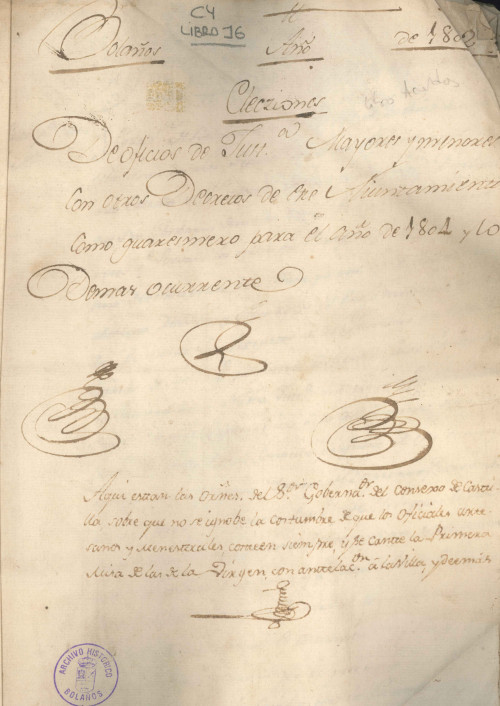 C4
LIBRO 16
Bolaños Año de 1802
Elecziones
De oficios de Jus.ª Mayores y menores
Con otros Decretos de este Ayuntamiento
Como quaresmero para el año de 1801 y lo
Demas ocurrente
Aqui estan las Orñes. del S.or Goberna.or del Consexo de Casti-
lla sobre que no se ignobe la costumbre de que los Oficiales arte-
sanos y Menestrales, costeen siempre, y se cante la Primera
Misa de las de la Virgen, con antelac.on a la Villa, y demas
ARCHIVO HISTORICO
BOLAÑOS